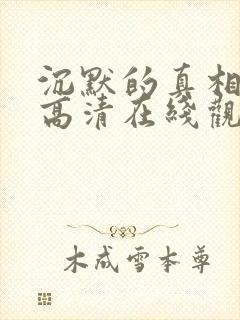 沉默的真相
高清在綫觀
木成雪本尊